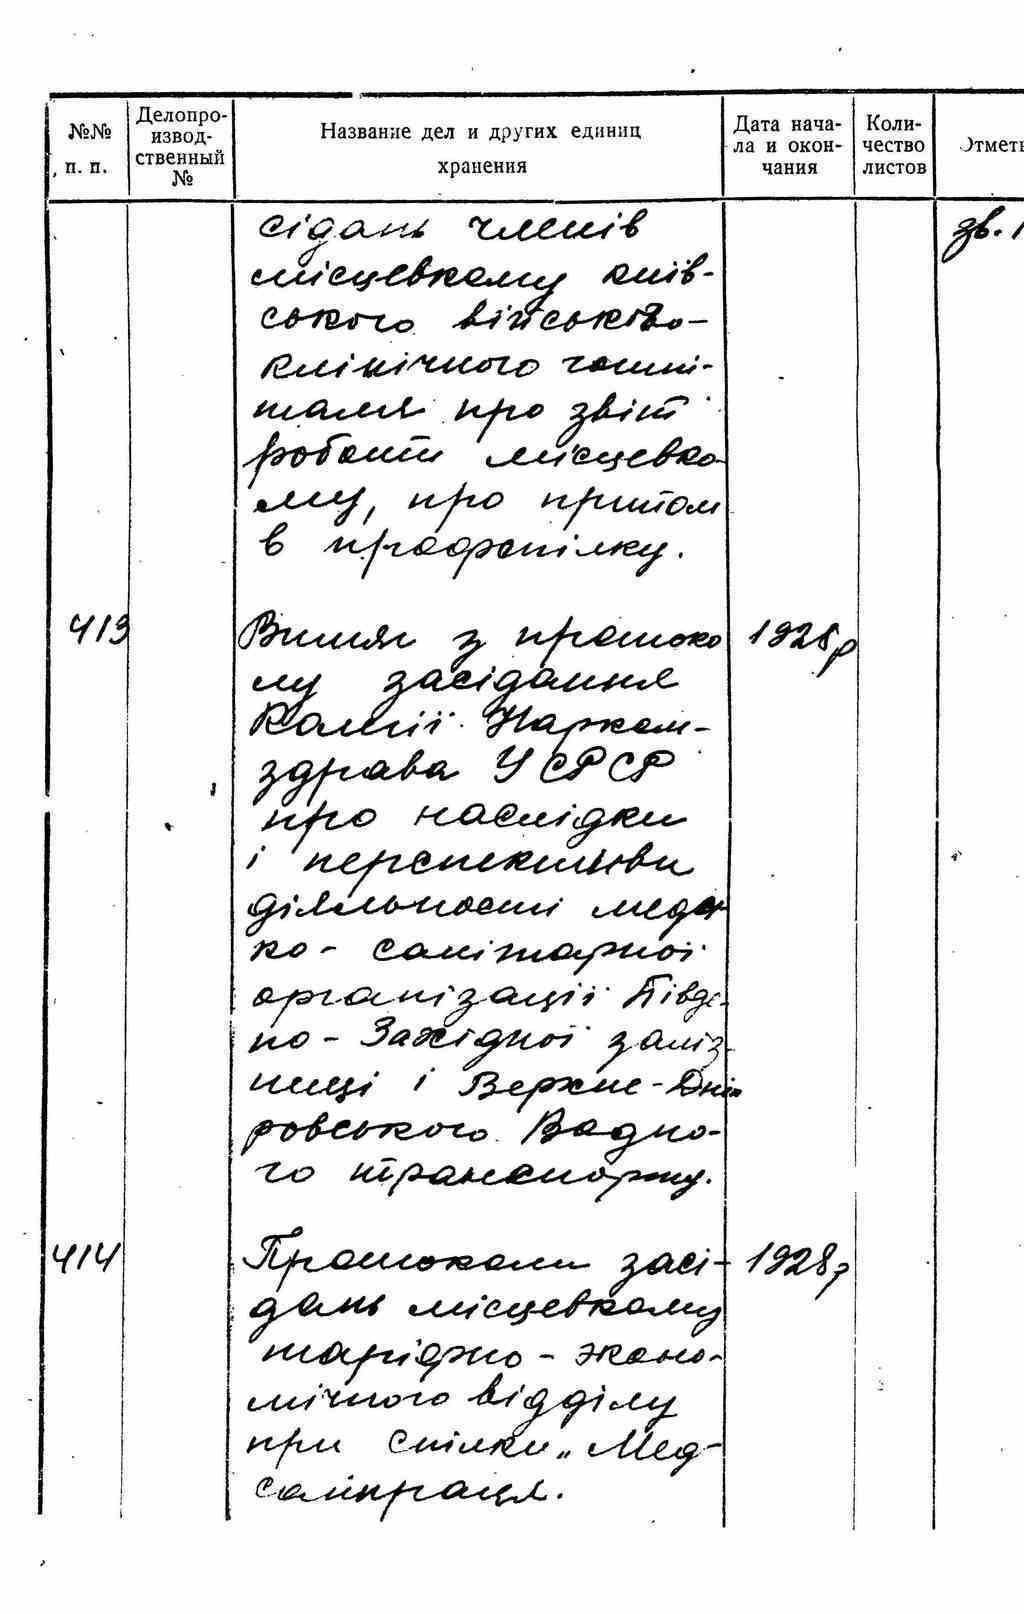 №№ п. п.
Делопро-
извод-
ственный
№
Название дел и других единиц
хранения
Дата нача-
ла и окон-
чания
Коли-
чество
листов
Отмет
сідань членів
місцевкому київ-
ського військово-
клінічного госпі-
таля про звіт
роботи місцевко-
му, про прийом
в профспілку.
зв. 1
413
Витяг з протоко
лу засідання
Колегії Нарком-
здрава УСРСР
про наслідки
і перспективи
діяльності меди
ко-санітарної
організації Півде-
но-Західної заліз-
ниці і Верхнє-Дніп
ровського Водно-
го транспорту.
1928р
414
Протоколи засі-
дань місцевкому
таріфно-эконо-
мічного відділу
при спілки „Мед-
санпраця.
1928р